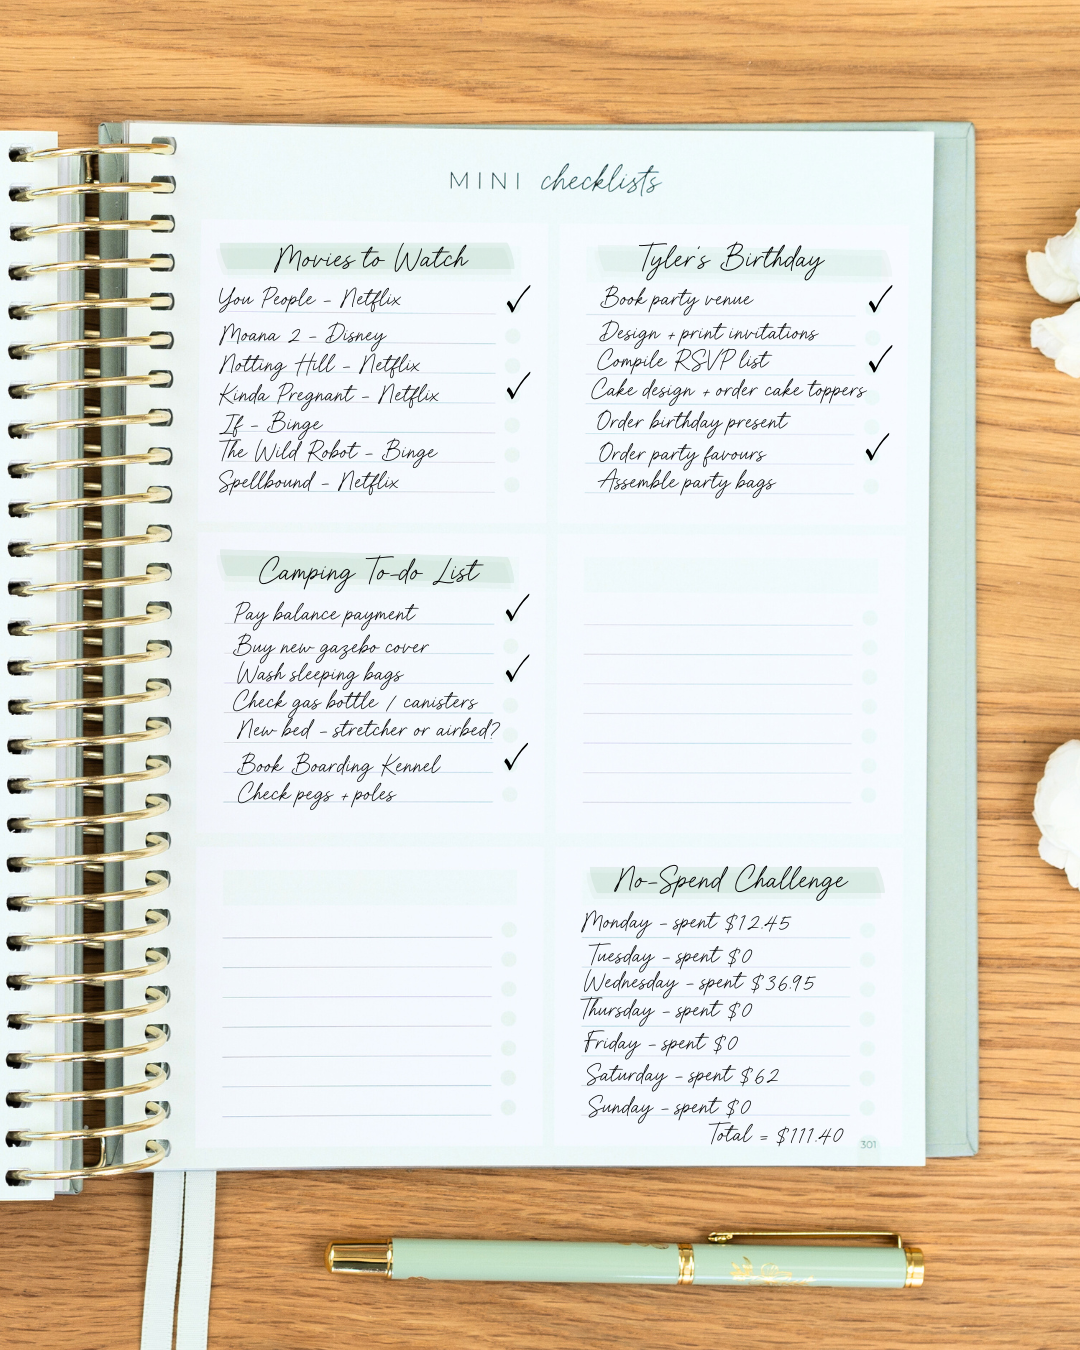 MINI checklists
Movies to Watch
You People - Netflix ✓
Moana 2 - Disney
Notting Hill - Netflix
Kinda Pregnant - Netflix ✓
If - Binge
The Wild Robot - Binge
Spellbound - Netflix
Tyler's Birthday
Book party venue ✓
Design + print invitations
Compile RSVP list ✓
Cake design + order cake toppers
Order birthday present
Order party favours ✓
Assemble party bags
Camping To-do List
Pay balance payment ✓
Buy new gazebo cover
Wash sleeping bags ✓
Check gas bottle / canisters
New bed - stretcher or airbed?
Book Boarding Kennel ✓
Check pegs + poles
No-Spend Challenge
Monday - spent $12.45
Tuesday - spent $0
Wednesday - spent $36.95
Thursday - spent $0
Friday - spent $0
Saturday - spent $62
Sunday - spent $0
Total = $111.40
301